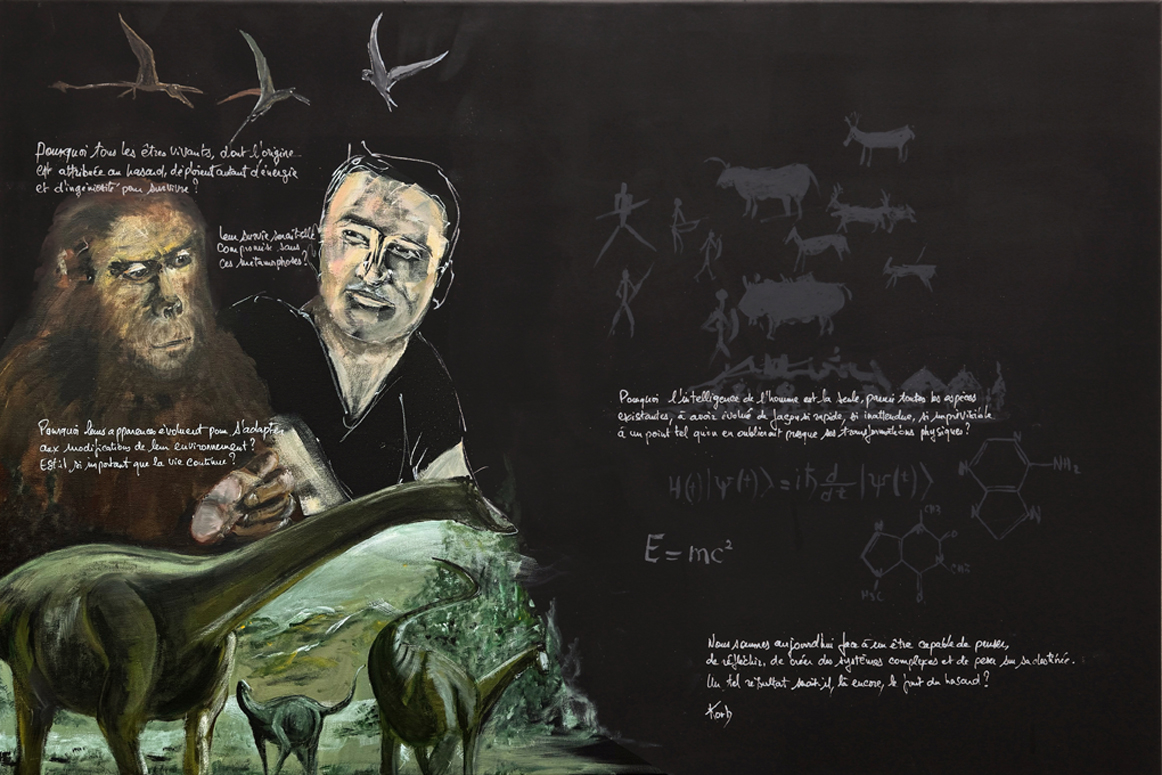 Pourquoi tous les êtres vivants, dont l'origine
est attribuée au hasard, déploient autant d'énergie
et d'ingéniosité pour survivre ?
Leur survie serait-elle
compromise sans
ces métamorphoses ?
Pourquoi leurs apparences évoluent pour s'adapter
aux modifications de leur environnement ?
Est il si important que la vie continue ?
Pourquoi l'intelligence de l'homme est la seule, parmi toutes les espèces
existantes, à avoir évolué de façon si rapide, si inattendue, si imprévisible
à un point tel qu'on en oublierait presque ses transformations physiques ?
H(t)|ψ(t)⟩ = iħ d/dt |ψ(t)⟩
NH₂
N
N
N
N
E = mc²
CH3
N
O
N
N
N
CH3
H3C
O
Nous sommes aujourd'hui face à un être capable de penser,
de réfléchir, de créer des systèmes complexes et de peser sur sa destinée.
Un tel résultat serait-il, là encore, le fruit du hasard ?